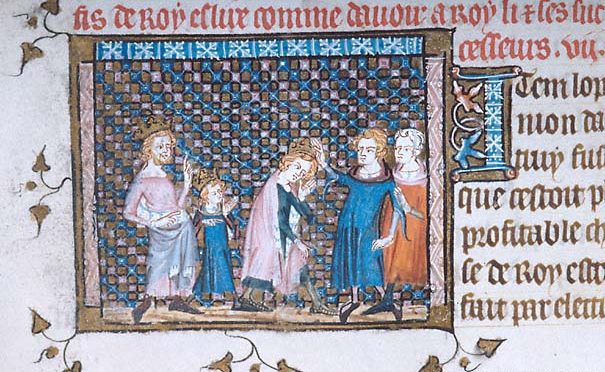 fis de Roy eslire comme davoir a Roy li ⁊ ses suc
cesseurs. vij.
Item lop
nion da
tuy fus
que cestoit p
profitable ch
se de Roy
fait par electi